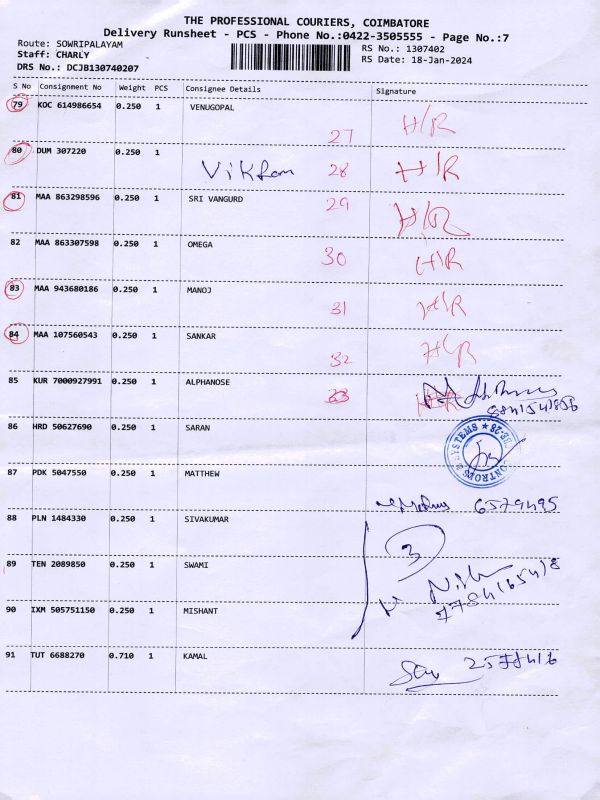 THE PROFESSIONAL COURIERS, COIMBATORE
Delivery Runsheet - PCS - Phone No.:0422-3505555 - Page No.:7
Route: SOWRIPALAYAM
Staff: CHARLY
DRS No.: DCJB130740207
RS No.: 1307402
RS Date: 18-Jan-2024
S No Consignment No Weight PCS Consignee Details Signature
79 KOC 614986654 0.250 1 VENUGOPAL
27 H/R
80 DUM 307220 0.250 1
Vikram 28 H/R
81 MAA 863298596 0.250 1 SRI VANGURD
29 H/R
82 MAA 863307598 0.250 1 OMEGA
30 H/R
83 MAA 943680186 0.250 1 MANOJ
31 H/R
84 MAA 107560543 0.250 1 SANKAR
32 H/R
85 KUR 7000927991 0.250 1 ALPHANOSE
33
86 HRD 50627690 0.250 1 SARAN
87 PDK 5047550 0.250 1 MATTHEW
6579495
88 PLN 1484330 0.250 1 SIVAKUMAR
3
89 TEN 2089850 0.250 1 SWAMI
90 IXM 505751150 0.250 1 MISHANT
91 TUT 6688270 0.710 1 KAMAL